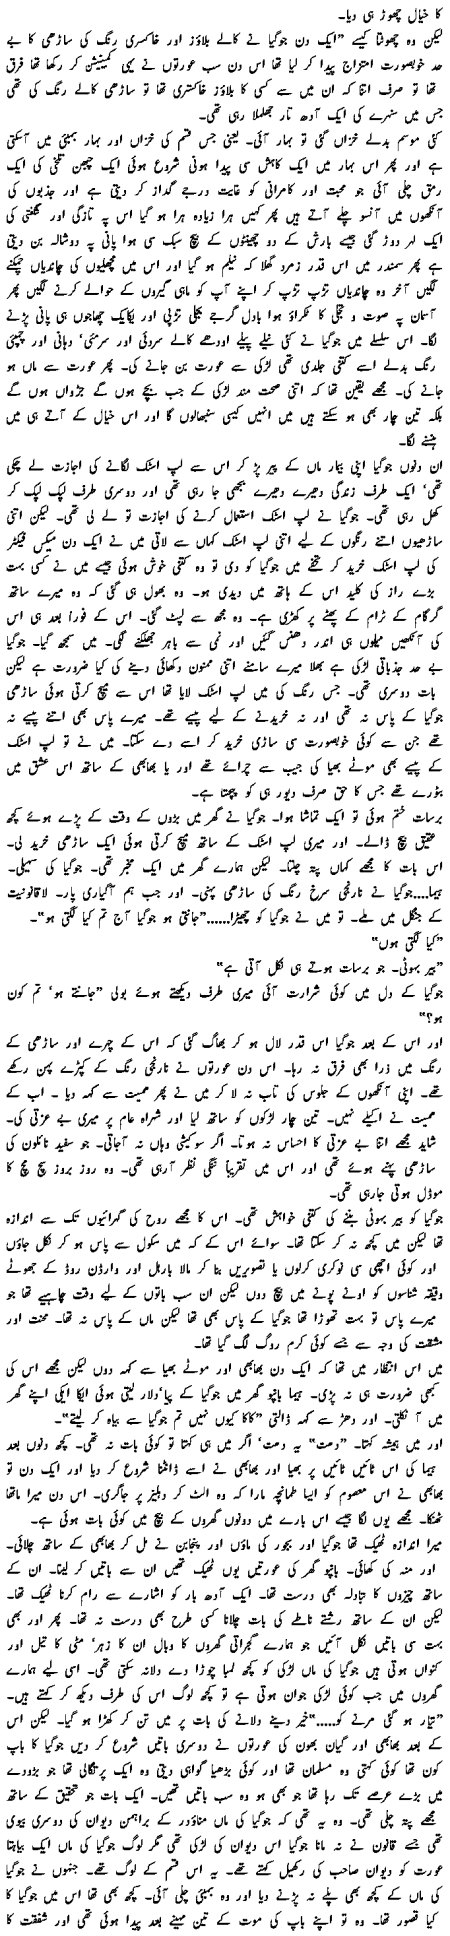 کا خیال چھوڑ ہی دیا۔
لیکن وہ چھوٹتا کیسے "ایک دن جوگیا نے کالے بلاؤز اور خاکستری رنگ کی ساڑھی کا بے
حد خوبصورت امتزاج پیدا کر لیا تھا اس دن سب عورتوں نے یہی کمبینیشن کر رکھا تھا فرق
تھا تو صرف اتنا کہ ان میں سے کسی کا بلاؤز خاکستری تھا تو ساڑھی کالے رنگ کی تھی
جس میں سنہرے کی ایک آدھ تار جھلملا رہی تھی۔
کئی موسم بدلے خزاں گئی تو بہار آئی۔ یعنی جس قسم کی خزاں اور بہار بمبئی میں آسکتی
ہے اور پھر اس بہار میں ایک کاہش سی پیدا ہونی شروع ہوئی ایک چبھن تلخی کی ایک
رمق چلی آئی جو محبت اور کامرانی کو غایت درجے گداز کر دیتی ہے اور جذبوں کی
آنکھوں میں آنسو چلے آتے ہیں پھر کہیں ہرا زیادہ ہرا ہو گیا اس پہ تازگی اور شگفتگی کی
ایک لہر دوڑ گئی جیسے بارش کے دو چھینٹوں کے بیچ سبک سی ہوا پانی پہ دوشالہ بن دیتی
ہے پھر سمندر میں اس قدر زمرد گھلا کہ نیلم ہو گیا اور اس میں مچھلیوں کی چاندیاں چمکنے
لگیں آخر وہ چاندیاں تڑپ تڑپ کر اپنے آپ کو ماہی گیروں کے حوالے کرنے لگیں پھر
آسمان پہ صوت و تجلی کا ٹکراؤ ہوا بادل گرجے بجلی تڑپی اور یکایک چھاجوں ہی پانی پڑنے
لگا۔ اس سلسلے میں جوگیا نے کئی نیلے پیلے اودھے کالے سردئی اور سرمئی' دہانی اور چمپئی
رنگ بدلے اسے کتنی جلدی تھی لڑکی سے عورت بن جانے کی۔ پھر عورت سے ماں ہو
جانے کی۔ مجھے یقین تھا کہ اتنی صحت مند لڑکی کے جب بچے ہوں گے جڑواں ہوں گے
بلکہ تین چار بھی ہو سکتے ہیں میں انہیں کیسی سنبھالوں گا اور اس خیال کے آتے ہی میں
ہنسنے لگا۔
ان دنوں جوگیا اپنی بیمار ماں کے پیر پڑ کر اس سے لپ اسٹک لگانے کی اجازت لے چکی
تھی' ایک طرف زندگی دھیرے دھیرے بجھی جا رہی تھی اور دوسری طرف لپک لپک کر
کھل رہی تھی۔ جوگیا نے لپ اسٹک استعمال کرنے کی اجازت تو لے لی تھی۔ لیکن اتنی
ساڑھیوں اتنے رنگوں کے لیے اتنی لپ اسٹک کہاں سے لاتی میں نے ایک دن میکس فیکٹر
کی لپ اسٹک خرید کر تحفے میں جوگیا کو دی تو وہ کتنی خوش ہوئی جیسے میں نے کسی بہت
بڑے راز کی کلید اس کے ہاتھ میں دیدی ہو۔ وہ بھول ہی گئی کہ وہ میرے ساتھ
گرگام کے ٹرام کے پھٹے پر کھڑی ہے۔ وہ مجھ سے لپٹ گئی۔ اس کے فوراً بعد ہی اس
کی آنکھیں میلوں ہی اندر دھنس گئیں اور نمی سے باہر جھلکنے لگی۔ میں سمجھ گیا۔ جوگیا
بے حد جذباتی لڑکی ہے بھلا میرے سامنے اتنی ممنون دکھائی دینے کی کیا ضرورت ہے لیکن
بات دوسری تھی۔ جس رنگ کی میں لپ اسٹک لایا تھا اس سے میچ کرتی ہوئی ساڑھی
جوگیا کے پاس نہ تھی اور نہ خریدنے کے لیے پیسے تھے۔ میرے پاس بھی اتنے پیسے نہ
تھے جن سے کوئی خوبصورت سی ساڑی خرید کر اسے دے سکتا۔ میں نے تو لپ اسٹک
کے پیسے بھی موٹے بھیا کی جیب سے چرائے تھے اور یا بھابھی کے ساتھ اس عشق میں
بٹورے تھے جس کا حق صرف دیور ہی کو پہنچتا ہے۔
برسات ختم ہوئی تو ایک تماشا ہوا۔ جوگیا نے گھر میں بڑوں کے وقت کے پڑے ہوئے کچھ
عقیق بیچ ڈالے۔ اور میری لپ اسٹک کے ساتھ میچ کرتی ہوئی ایک ساڑھی خرید لی۔
اس بات کا مجھے کہاں پتہ چلتا۔ لیکن ہمارے گھر میں ایک مخبر تھی۔ جوگیا کی سہیلی۔
ہیما....جوگیا نے نارنجی سرخ رنگ کی ساڑھی پہنی۔ اور جب ہم آگیاری پار۔ لاقانونیت
کے جنگل میں ملے۔ تو میں نے جوگیا کو چھیڑا......"جانتی ہو جوگیا آج تم کیا لگتی ہو"۔
"کیا لگتی ہوں"
"بیر بہوٹی۔ جو برسات ہوتے ہی نکل آتی ہے"
جوگیا کے دل میں کوئی شرارت آئی میری طرف دیکھتے ہوئے بولی "جانتے ہو' تم کون
ہو؟"
اور اس کے بعد جوگیا اس قدر لال ہو کر بھاگ گئی کہ اس کے چہرے اور ساڑھی کے
رنگ میں ذرا بھی فرق نہ رہا۔ اس دن عورتوں نے نارنجی رنگ کے کپڑے پہن رکھے
تھے۔ اپنی آنکھوں کے جلوس کی تاب نہ لا کر میں نے پھر ہمیت سے کہہ دیا ۔ اب کے
ہمیت نے اکیلے نہیں۔ تین چار لڑکوں کو ساتھ لیا اور شہراہ عام پر میری بے عزتی کی۔
شاید مجھے اتنا بے عزتی کا احساس نہ ہوتا۔ اگر سوکیشی وہاں نہ آجاتی۔ جو سفید نائلون کی
ساڑھی پہنے ہوئے تھی اور اس میں تقریباً ننگی نظر آرہی تھی۔ وہ روز بروز سچ مچ کا
موڈل ہوتی جارہی تھی۔
جوگیا کو بیر بہوٹی بننے کی کتنی خواہش تھی۔ اس کا مجھے روح کی گہرائیوں تک سے اندازہ
تھا لیکن میں کچھ نہ کر سکتا تھا۔ سوائے اس کے کہ میں سکول سے پاس ہو کر نکل جاؤں
اور کوئی اچھی سی نوکری کرلوں یا تصویریں بنا کر مالا بارہل اور وارڈن روڈ کے جھوٹے
وقیقہ شناسوں کو اونے پونے میں بیچ دوں لیکن ان سب باتوں کے لیے وقت چاہیے تھا جو
میرے پاس تو بہت تھوڑا تھا جوگیا کے پاس بھی تھا لیکن ماں کے پاس نہ تھا۔ محنت اور
مشقت کی وجہ سے جسے کوئی کرم روگ لگ گیا تھا۔
میں اس انتظار میں تھا کہ ایک دن بھابھی اور موٹے بھیا سے کہہ دوں لیکن مجھے اس کی
کبھی ضرورت ہی نہ پڑی۔ ہیما باپنو گھر میں جوگیا کے پیا'دلار لیتی ہوئی ایکا ایکی اپنے گھر
میں آ نکلتی۔ اور دھڑ سے کہہ ڈالتی "کاکا کیوں نہیں تم جوگیا سے بیاہ کر لیتے"۔
اور میں ہمیشہ کہتا۔ "دھت" یہ دھت' اگر میں ہی کہتا تو کوئی بات نہ تھی۔ کچھ دنوں بعد
ہیما کی اس ٹائیں ٹائیں پر بھیا اور بھابھی نے اسے ڈانٹنا شروع کر دیا اور ایک دن تو
بھابھی نے اس معصوم کو ایسا طمانچہ مارا کہ وہ الٹ کر دہلیز پر جاگری۔ اس دن میرا ماتھا
ٹھنکا۔ مجھے یوں لگا جیسے اس بارے میں دونوں گھروں کے بیچ میں کوئی بات ہوئی ہے۔
میرا اندازہ ٹھیک تھا جوگیا اور بجور کی ماؤں اور پنجابن نے مل کر بھابھی کے ساتھ چلائی۔
اور منہ کی کھائی۔ باپنو گھر کی عورتیں یوں ٹھیک تھیں ان سے باتیں کر لینا۔ ان کے
ساتھ چیزوں کا تبادلہ بھی درست تھا۔ ایک آدھ بار کو اشارے سے رام کرنا ٹھیک تھا۔
لیکن ان کے ساتھ رشتے ناطے کی بات چلانا کسی طرح بھی درست نہ تھا۔ پھر اور بھی
بہت سی باتیں نکل آئیں جو ہمارے گجراتی گھروں کا وبال ان کا زہر' مٹی کا تیل اور
کنواں ہوتی ہیں جوگیا کی ماں لڑکی کو کچھ لمبا چوڑا دے دلانہ سکتی تھی۔ اسی لیے ہمارے
گھروں میں جب کوئی لڑکی جوان ہوتی ہے تو کچھ لوگ اس کی طرف دیکھ کر کہتے ہیں۔
"تیار ہو گئی مرنے کو....."خیر دینے دلانے کی بات پر میں تن کر کھڑا ہو گیا۔ لیکن اس
کے بعد بھابھی اور گیان بھون کی عورتوں نے دوسری باتیں شروع کر دیں جوگیا کا باپ
کون تھا کوئی کہتی وہ مسلمان تھا اور کوئی بڑھیا گواہی دیتی وہ ایک پرتگالی تھا جو بڑودے
میں بڑے عرصے تک رہا تھا جو بھی ہو وہ سب باتیں تھیں۔ ایک بات جو تحقیق کے ساتھ
مجھے پتہ چلی تھی۔ وہ یہ تھی کہ جوگیا کی ماں مناؤدر کے براہمن دیوان کی دوسری بیوی
تھی جسے قانون نے نہ مانا جوگیا اس دیوان کی لڑکی تھی مگر لوگ جوگیا کی ماں ایک بیاہتا
عورت کو دیوان صاحب کی رکھیل کہتے تھے۔ یہ اس قسم کے لوگ تھے۔ جنہوں نے جوگیا
کی ماں کے کچھ بھی پلے نہ پڑنے دیا اور وہ بمبئی چلی آئی۔ کچھ بھی تھا اس میں جوگیا کا
کیا قصور تھا۔ وہ تو اپنے باپ کی موت کے تین مہینے بعد پیدا ہوئی تھی اور شفقت کا